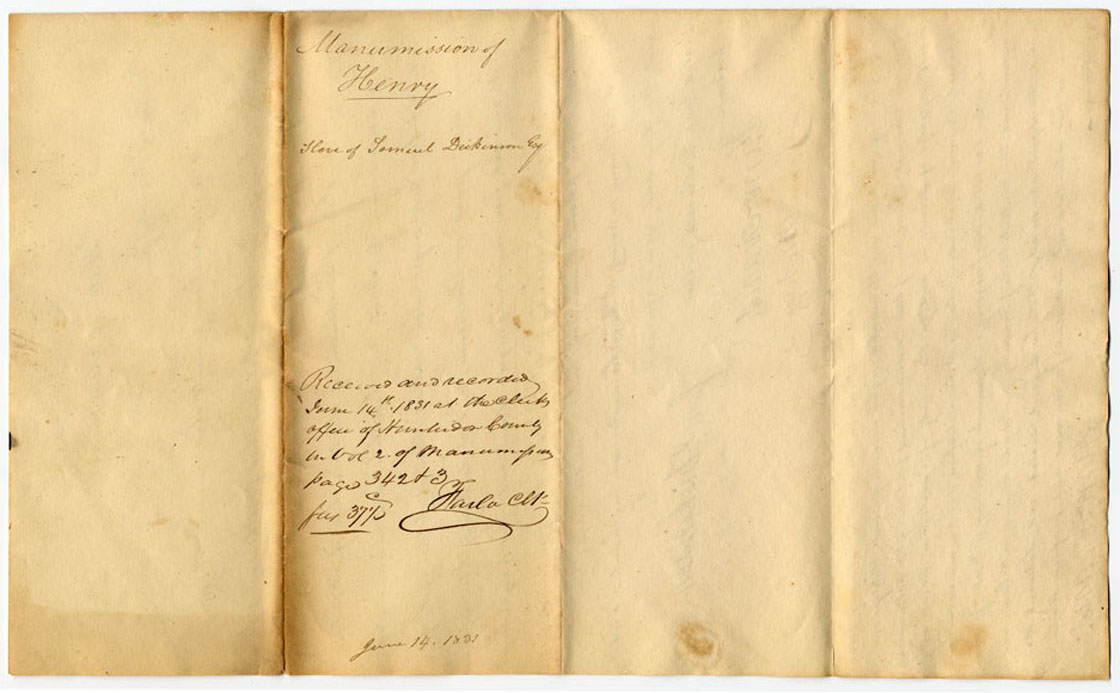 Manumission of
Henry
Slave of Samuel Dickinson Esq
Received and recorded
June 14th 1831 at the Clerks
office of Hunterdon County
in Vol 2. of Manumissions
page 342 & 3
fees 37½ C
Farlo Clk
June 14. 1831